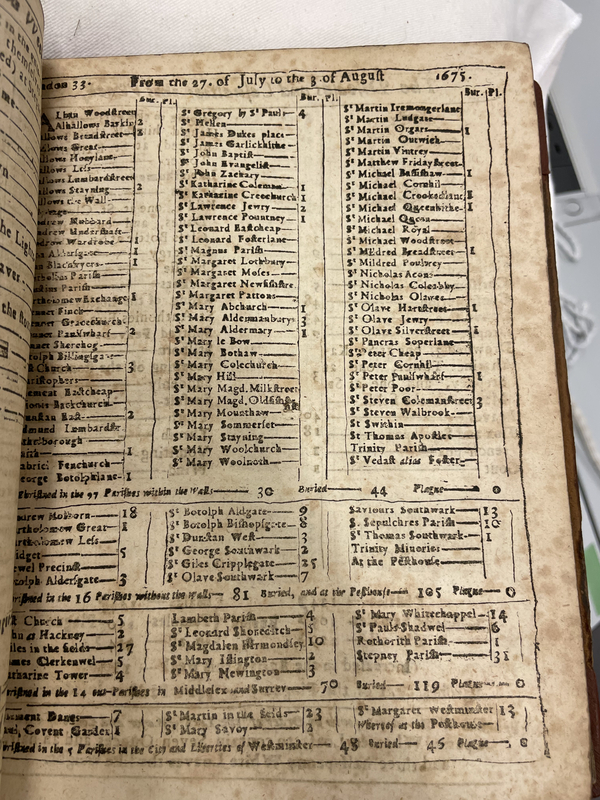 London 33. From the 27. of July to the 3 of August 1675.
Bur. Pl. Bur. Pl. Bur. Pl.
Alban Woodstreet St Gregory by St Pauls 4 St Martin Iremongerlane
Alhallows Barkin 2 St Hellen St Martin Ludgate
llows Breadstreet St James Dukes place St Martin Orgars 1
llows Great St James Garlickhithe St Martin Outwich
llows Honylane St John Baptist St Martin Vintrey
llows Less St John Evangelist St Matthew Fridaystreet
llows Lumbardstreet St John Zachary St Michael Bassishaw 1
llows Stayning 2 St Katharine Coleman St Michael Cornhil
llows the Wall St Katharine Creechurch 1 St Michael Crookedlane
St Lawrence Jewry 2 St Michael Queenhithe 1
drew Hubbard St Lawrence Pountney 1 St Michael Queen
drew Undershaft St Leonard Eastcheap St Michael Royal
drew Wardrobe 1 St Leonard Fosterlane St Michael Woodstreet
Aldersgate 1 St Magnus Parish St Mildred Breadstreet 1
Blackfryers 1 St Margaret Lothbury St Mildred Poultrey
Parish St Margaret Moses St Nicholas Acons
Parish St Margaret Newfishstre. St Nicholas Coleabby
tholomew Exchange 1 St Margaret Pattons St Nicholas Olaves
Finch St Mary Abchurch 1 St Olave Hartstreet 1
Gracechurch St Mary Aldermanbury 3 St Olave Jewry
Paulswharf 2 St Mary Aldermary 1 St Olave Silverstreet 1
Sherehog St Mary le Bow St Pancras Soperlane
tolph Billingsgate St Mary Bothaw St Peter Cheap
Church 3 St Mary Colechurch St Peter Cornhil
ristophers St Mary Hill St Peter Paulswharf 1
ement Eastcheap St Mary Magd. Milkstreet St Peter Poor
Backchurch St Mary Magd. Oldfishst. St Steven Colemanstreet 3
nstan East 2 St Mary Mounthaw St Steven Walbrook
dmund Lumbardstr. St Mary Sommerset St Swithin
thelborough St Mary Stayning St Thomas Apostles
aith 1 St Mary Woolchurch Trinity Parish
abriel Fenchurch St Mary Woolnoth St Vedast alias Foster
eorge Botolphlane 1
Christned in the 97 Parishes within the Walls 30 Buried 44 Plague 0
ndrew Holborn 18 St Botolph Aldgate 9 Saviours Southwark 13
artholomew Great 1 St Botolph Bishopsgate 8 S. Sepulchres Parish 10
artholomew Less St Dunstan West 3 St Thomas Southwark 1
ridget 5 St George Southwark 2 Trinity Minories
ewel Precinct St Giles Cripplegate 25 At the Pesthouse
otolph Aldersgate 3 St Olave Southwark 7
ristned in the 16 Parishes without the walls 81 Buried, and at the Pesthouse 105 Plague 0
Church 5 Lambeth Parish 4 St Mary Whitechappel 14
hn at Hackney 2 St Leonard Shoreditch St Pauls Shadwel 6
iles in the fields 27 St Magdalen Bermondsey 10 Rothorith Parish 1
ames Clerkenwel 5 St Mary Islington 2 Stepney Parish 31
atharine Tower 4 St Mary Newington 3
ristned in the 14 out-Parishes in Middlesex and Surrey 70 Buried 119 Plague 0
lement Danes 7 St Martin in the fields 23 St Margaret Westminster 13
aul, Covent Garden 1 St Mary Savoy Whereof at the Pesthouse
ristned in the 5 Parishes in the City and Liberties of Westminster 48 Buried 45 Plague 0